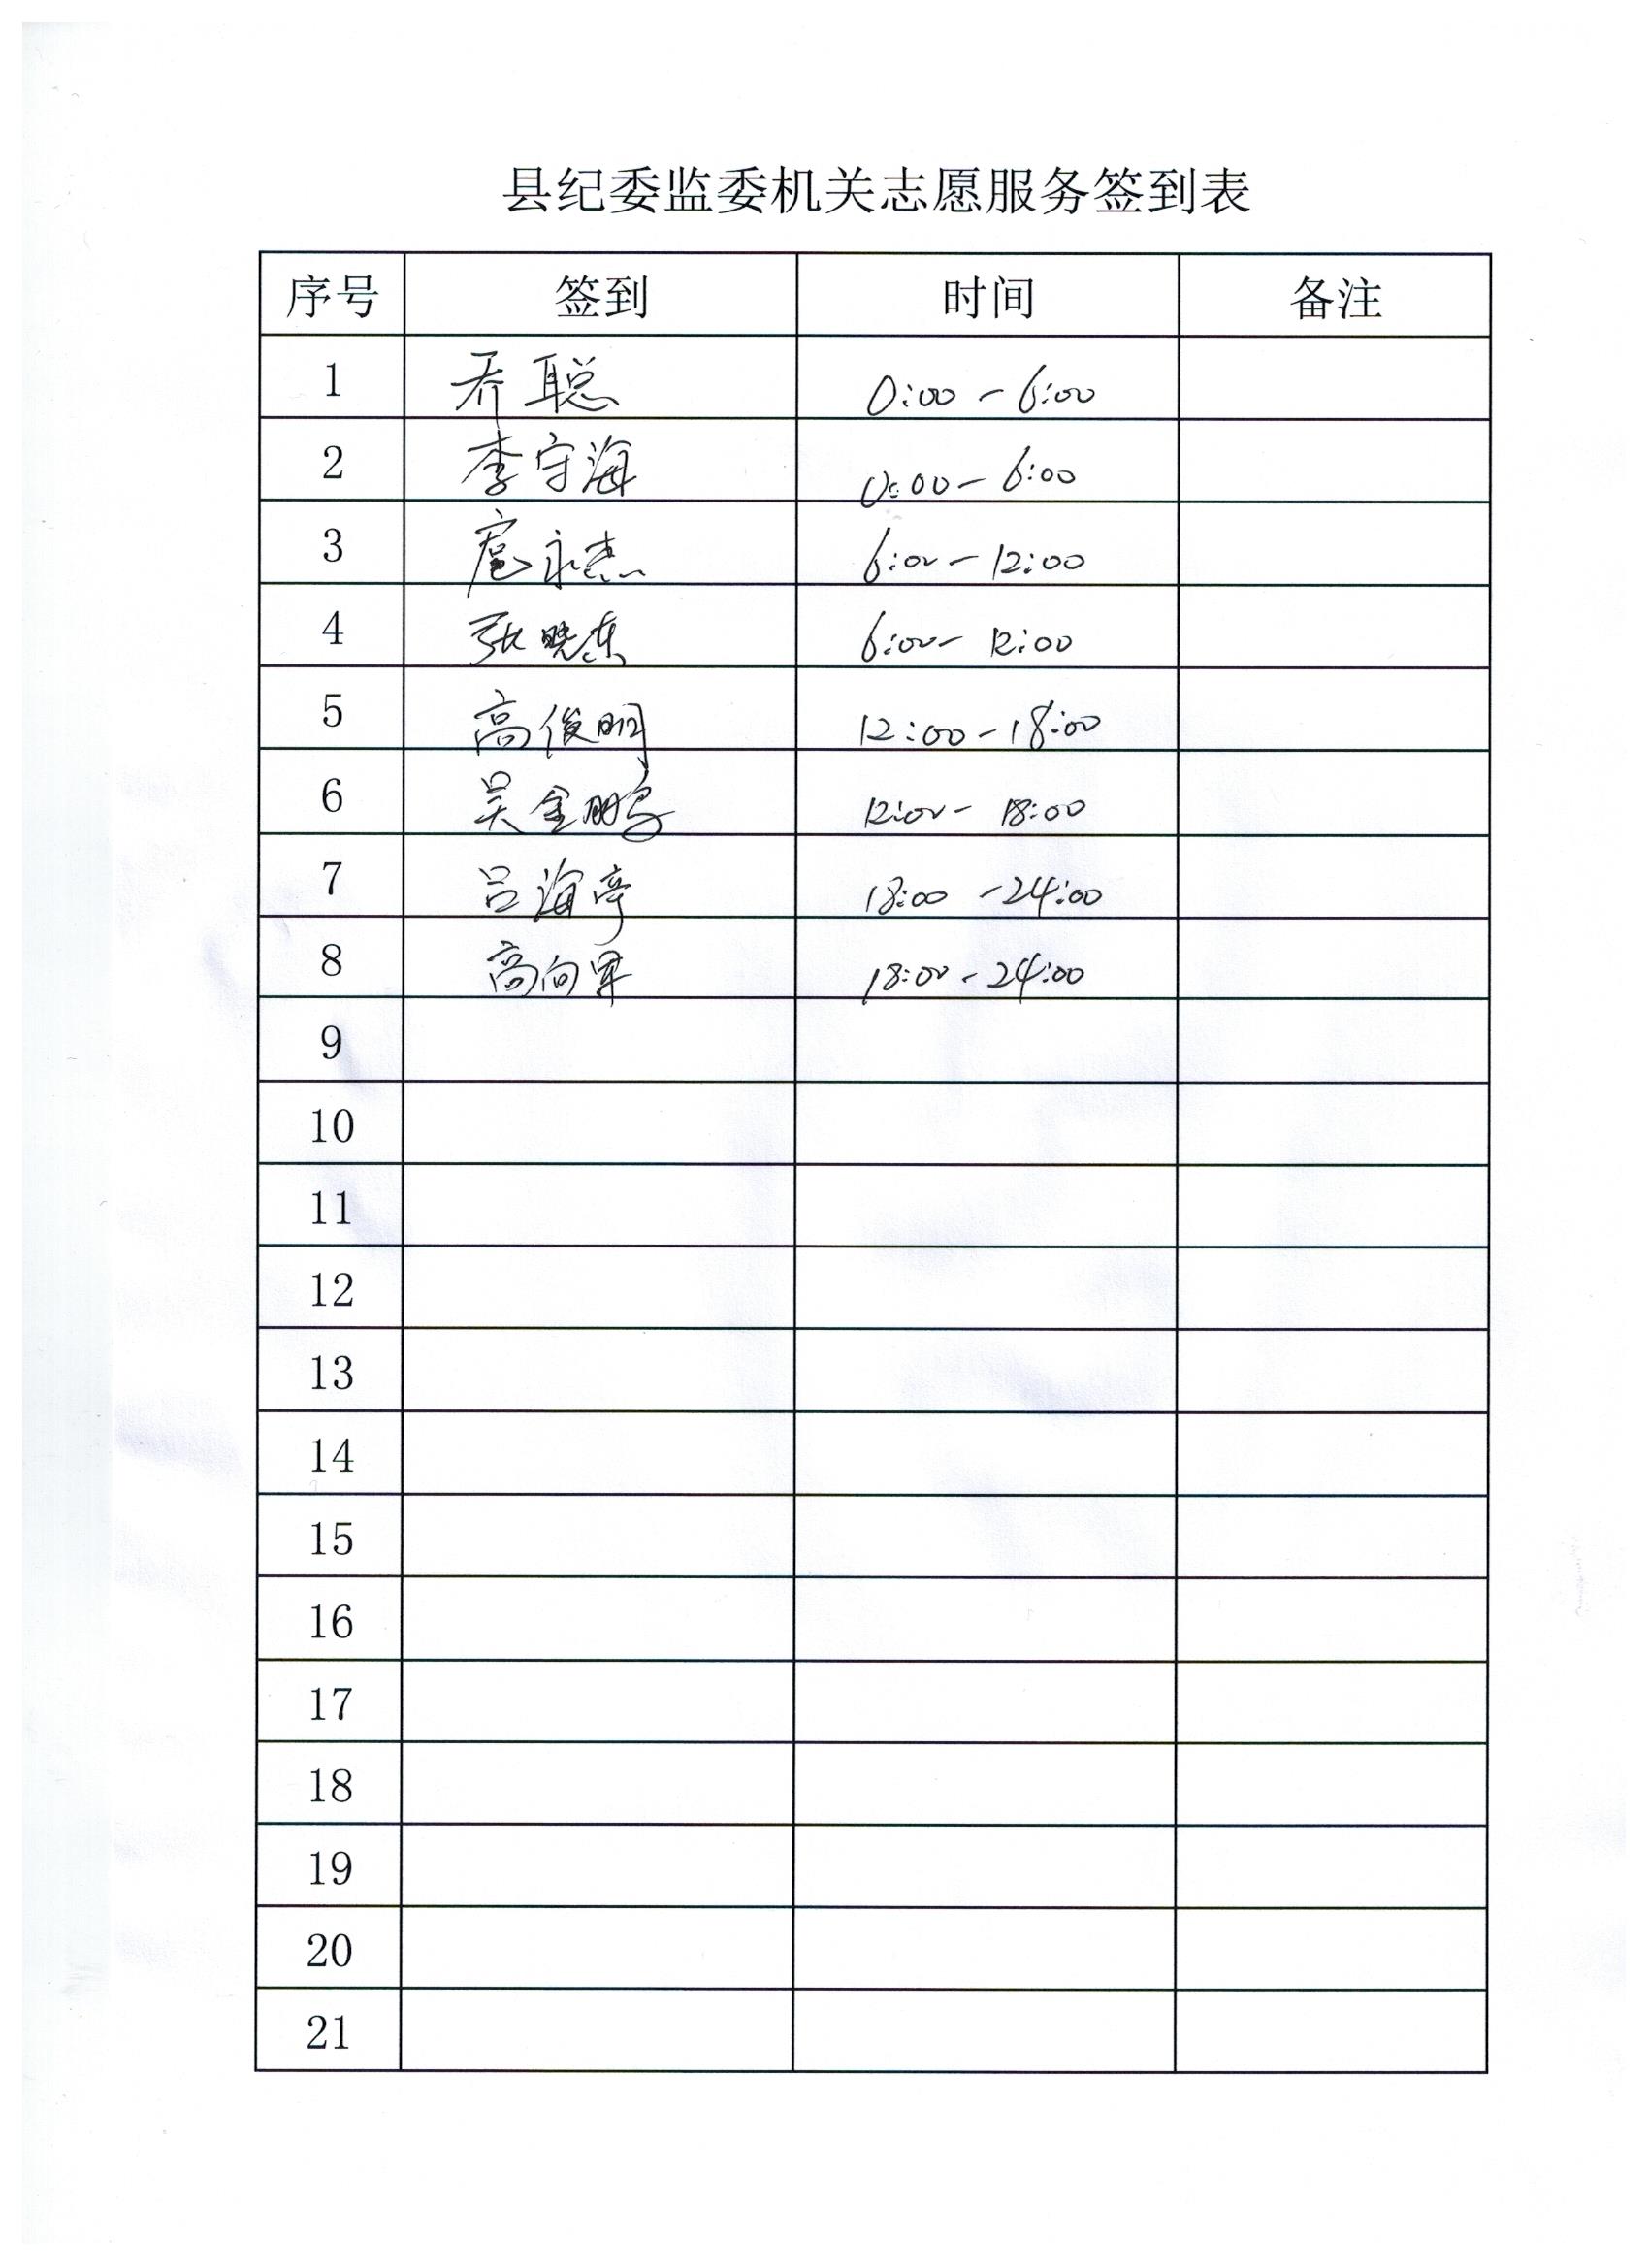 县纪委监委机关志愿服务签到表
序号 签到 时间 备注
1 乔聪 0:00-6:00
2 李守海 0:00-6:00
3 扈永杰 6:00-12:00
4 张晓东 6:00-12:00
5 高俊明 12:00-18:00
6 吴金鹏 12:00-18:00
7 吕海亭 18:00-24:00
8 高向 18:00-24:00
9
10
11
12
13
14
15
16
17
18
19
20
21